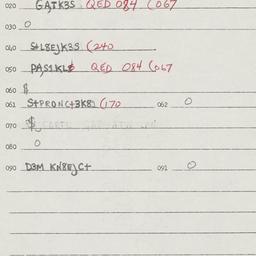 020 GATK3S QED 084 (067
030 0
040 S+L8EJK3S (240
050 PAS1KL$ QED 084 (067
060 $
061 S+PRONC+3K8) (170 062 0
070 $
080 0
090 D3M KN8EJC+ 091 0